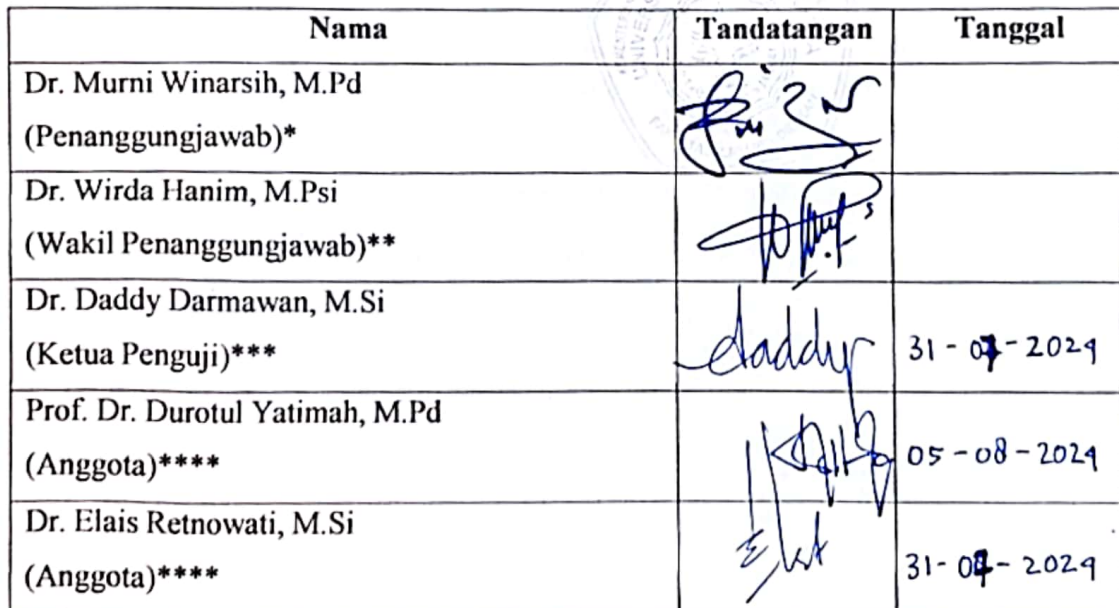 Nama Tandatangan Tanggal
Dr. Murni Winarsih, M.Pd
(Penanggungjawab)*
Dr. Wirda Hanim, M.Psi
(Wakil Penanggungjawab)**
Dr. Daddy Darmawan, M.Si
(Ketua Penguji)*** daddy 31-07-2024
Prof. Dr. Durotul Yatimah, M.Pd
(Anggota)**** 05-08-2024
Dr. Elais Retnowati, M.Si
(Anggota)**** 31-07-2024